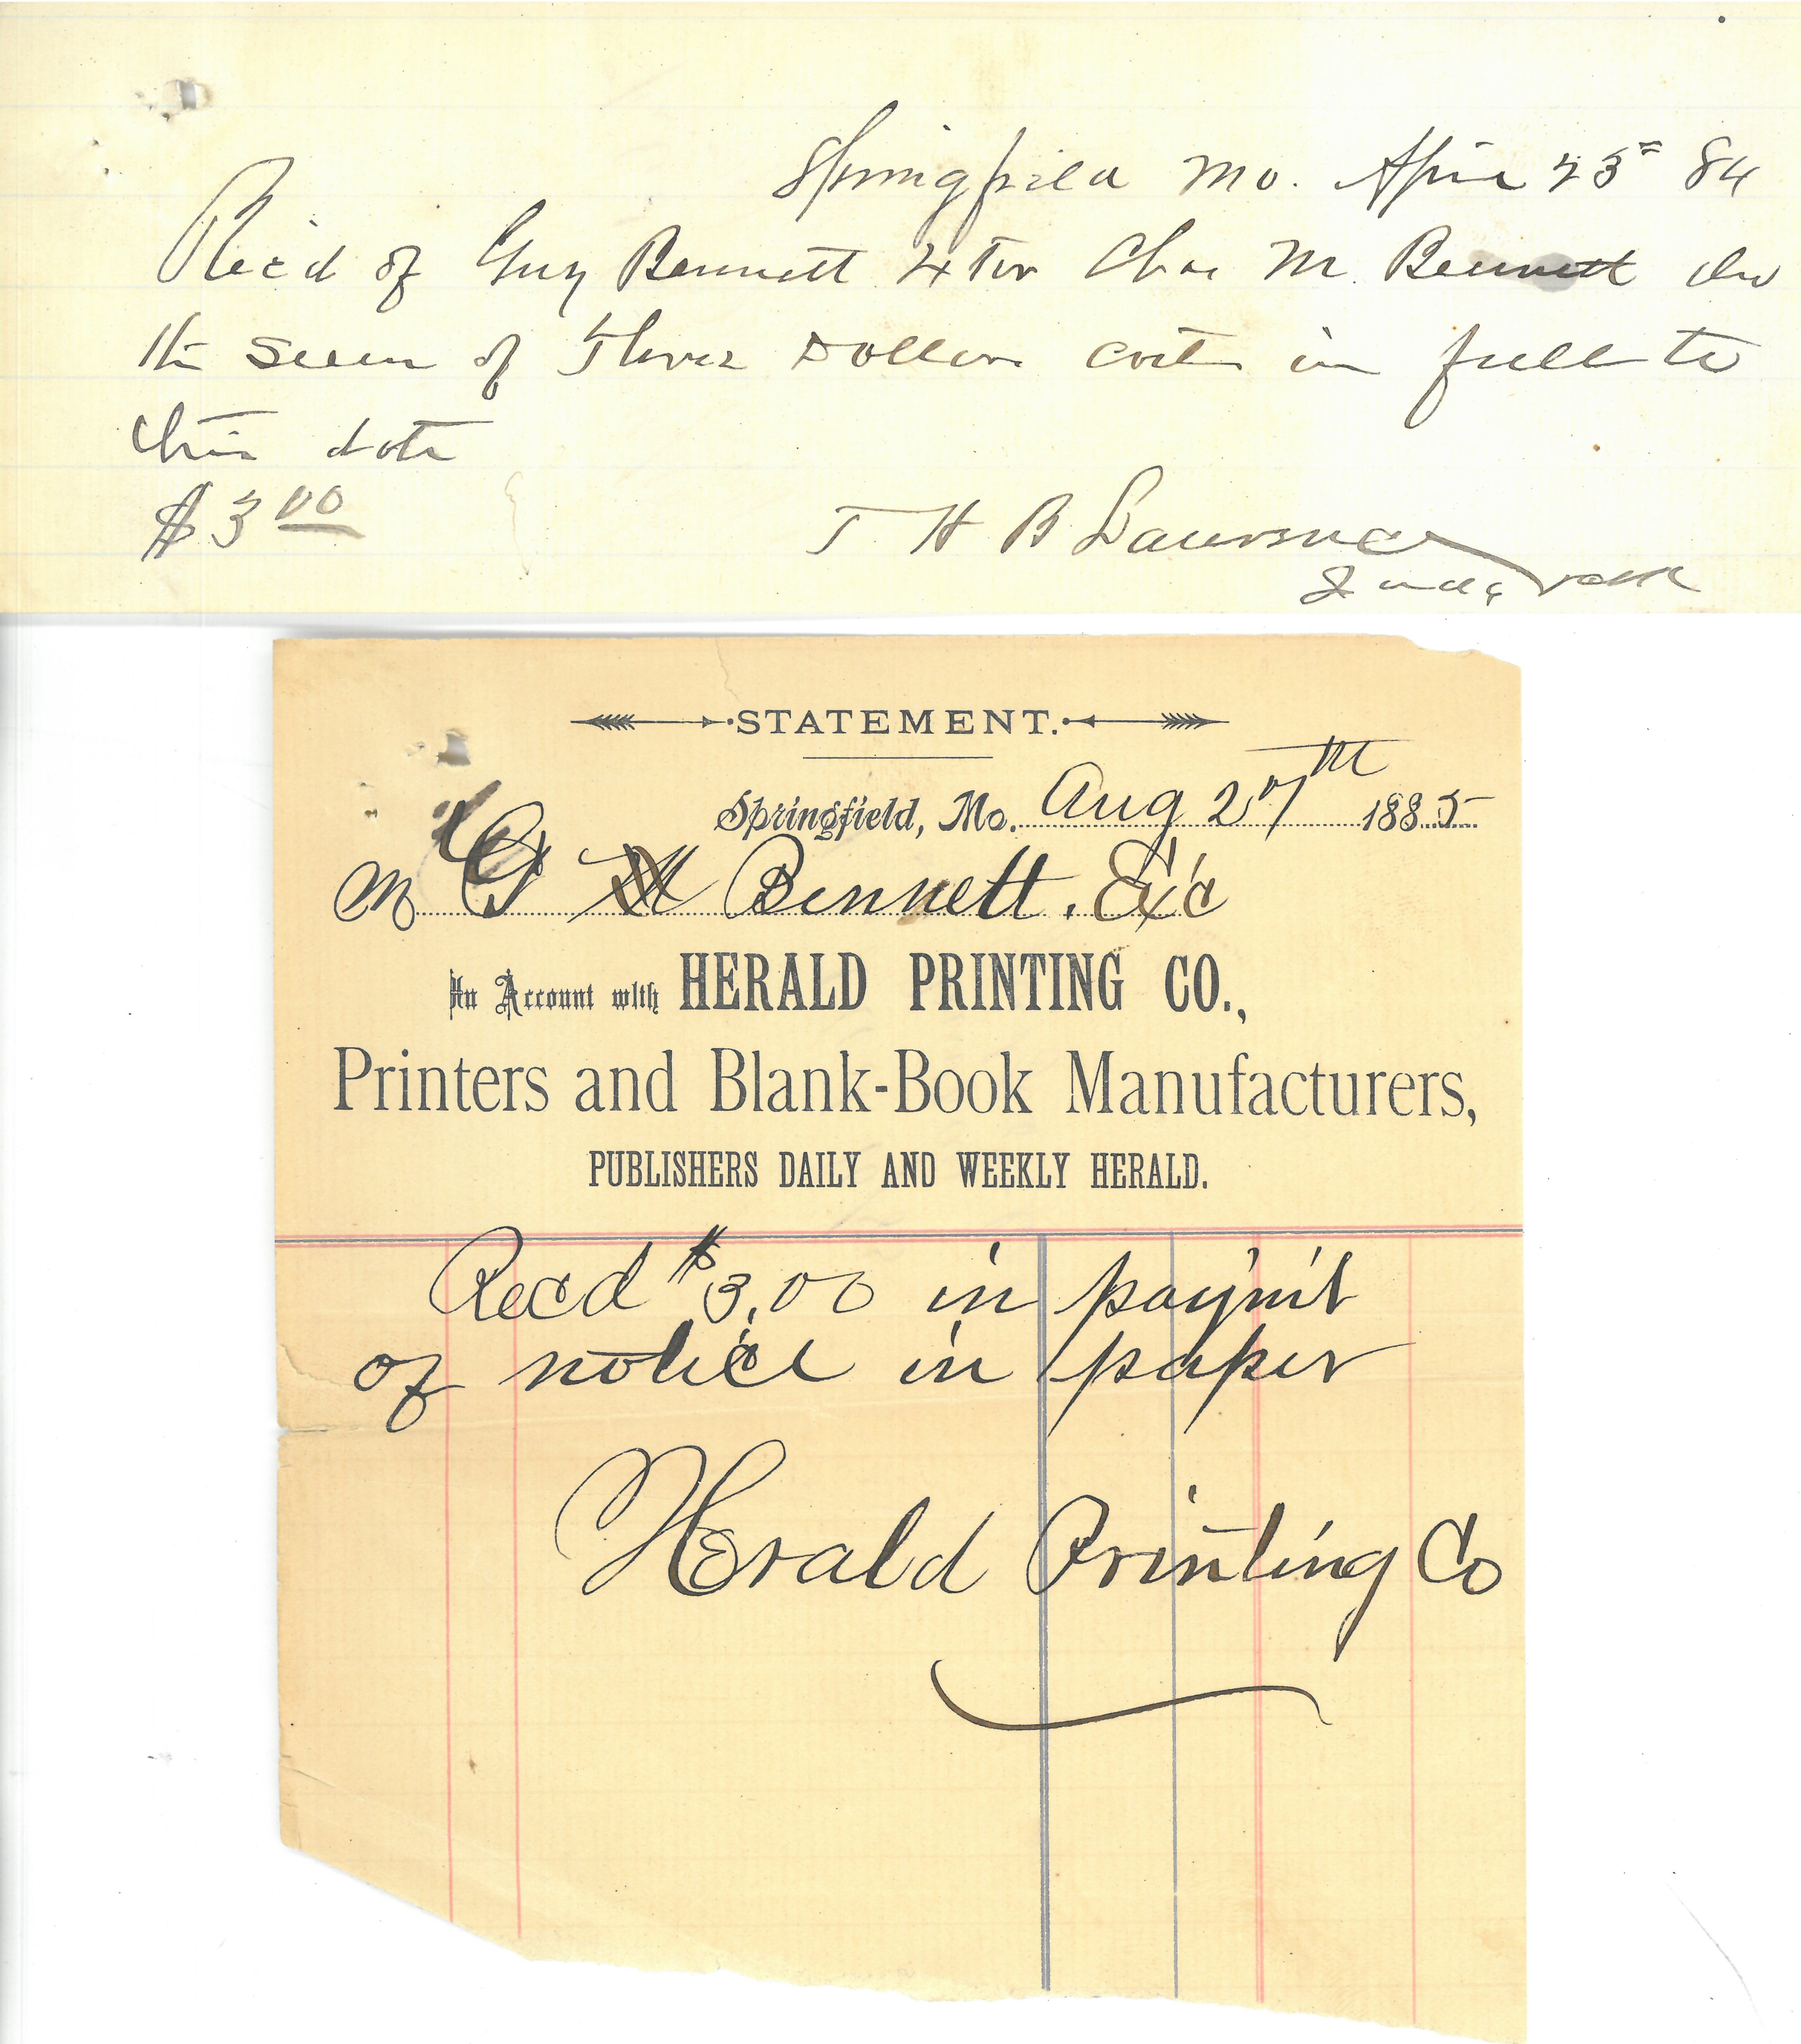 Springfield Mo. April 23" 84
Rec'd of Guy Bennett Extor Chas M. Bennett decd
the sum of Three Dollars costs in full to
this date
$3 00
T H B Lawrence
Judge
STATEMENT.
Springfield, Mo. Aug 27th 1885
M G Bennett. Ex'c
In Account with HERALD PRINTING CO.,
Printers and Blank-Book Manufacturers,
PUBLISHERS DAILY AND WEEKLY HERALD.
Recd $3.00 in paym't
of notice in paper
Herald Printing Co